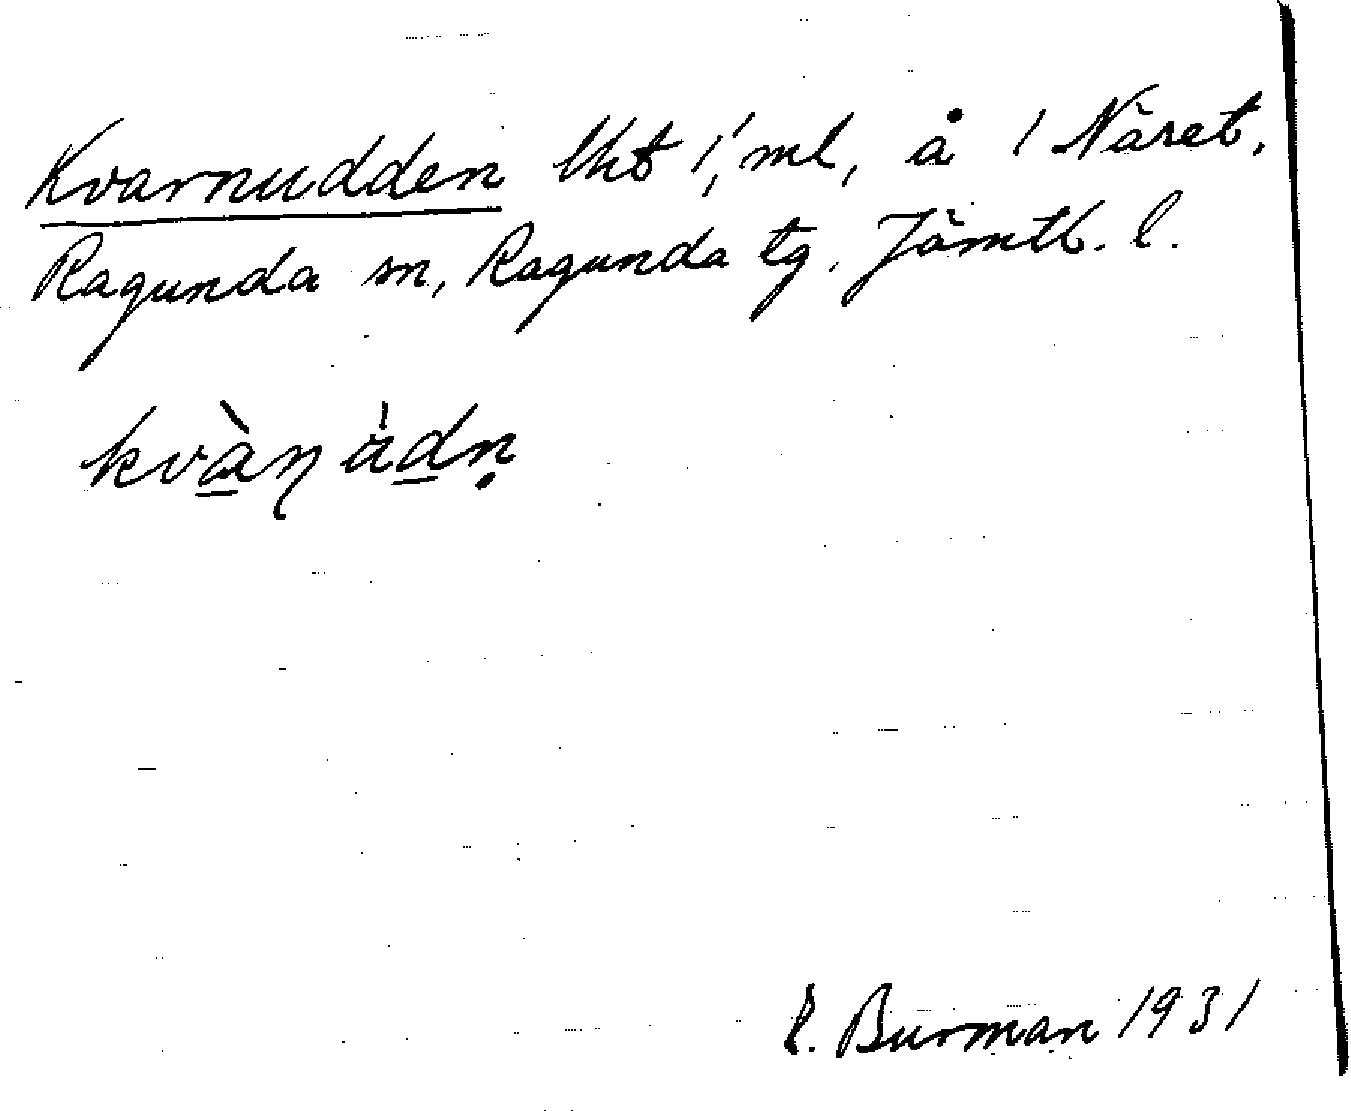 Kvarnudden lht i, ml, å i Näset,
Ragunda sn, Ragunda tg, Jämtl. l.
kvàɳ ȧdṇ
E. Burman 1931